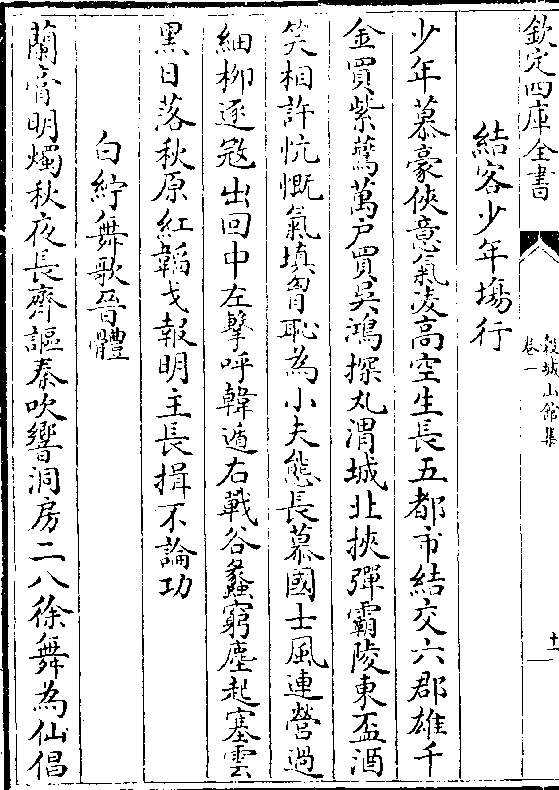 欽定四庫全書
穀城山館集
卷一
十一
結客少年場行
少年慕豪俠意氣凌高空生長五都市結交六郡雄千
金買紫鷰萬戶買吳鴻探丸渭城北挾彈霸陵東盃酒
笑相許忼慨氣填胷恥為小夫態長慕國士風連營過
細柳逐寇出回中左擊呼韓遁右戰谷蠡窮塵起塞雲
黑日落秋原紅韜戈報明主長揖不論功
白紵舞歌晉體
蘭膏明燭秋夜長齊謳秦吹響洞房二八徐舞為仙倡